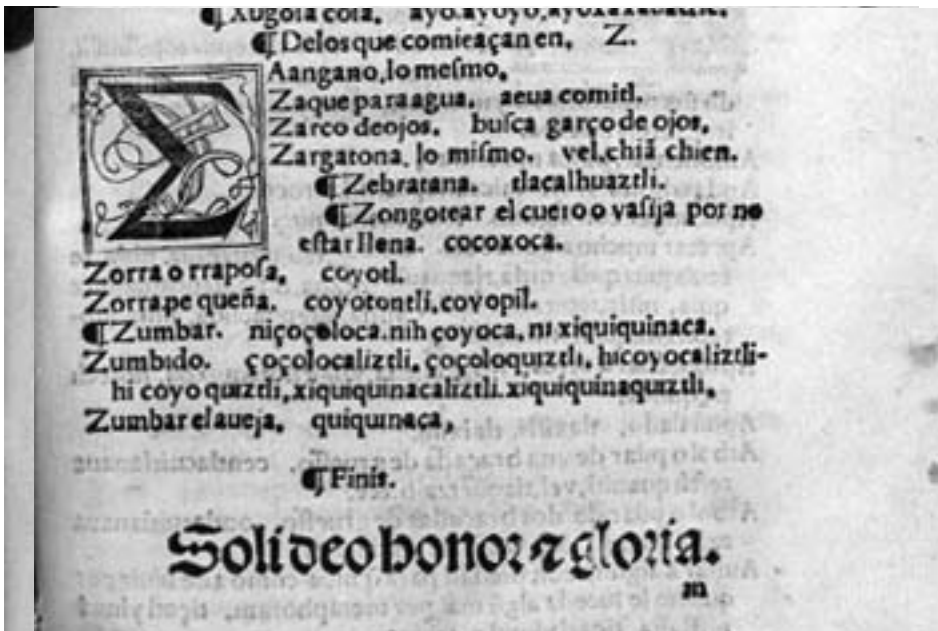 ¶ Xugosa cosa. ayo.ayoyo,
¶ Delos que comiēçan en, Z.
Aangano, lo meſmo,
Zaque para agua. aeua comitl.
Zarco deojos. buſca garço de ojos,
Zargatona, lo miſmo. vel, chiā chien.
¶ Zebratana. tlacalhuaztli.
¶ Zongotear el cuero o vaſija por no
eſtar llena. cocoxoca.
Zorra o rrapoſa, coyotl.
Zorra pe queña. coyotontli, coyopil.
¶ Zumbar. niçoçoloca. nih çoyoca, ni xiquiquinaca.
Zumbido. çoçolocaliztli, çoçoloquiztli, hicoyocaliztli-
hi coyo quiztli, xiquiquinacaliztli. xiquiquinaquiztli,
Zumbar el aueja, quiquinaca,
¶ Finis.
Soli deo honor ⁊ gloria.
m